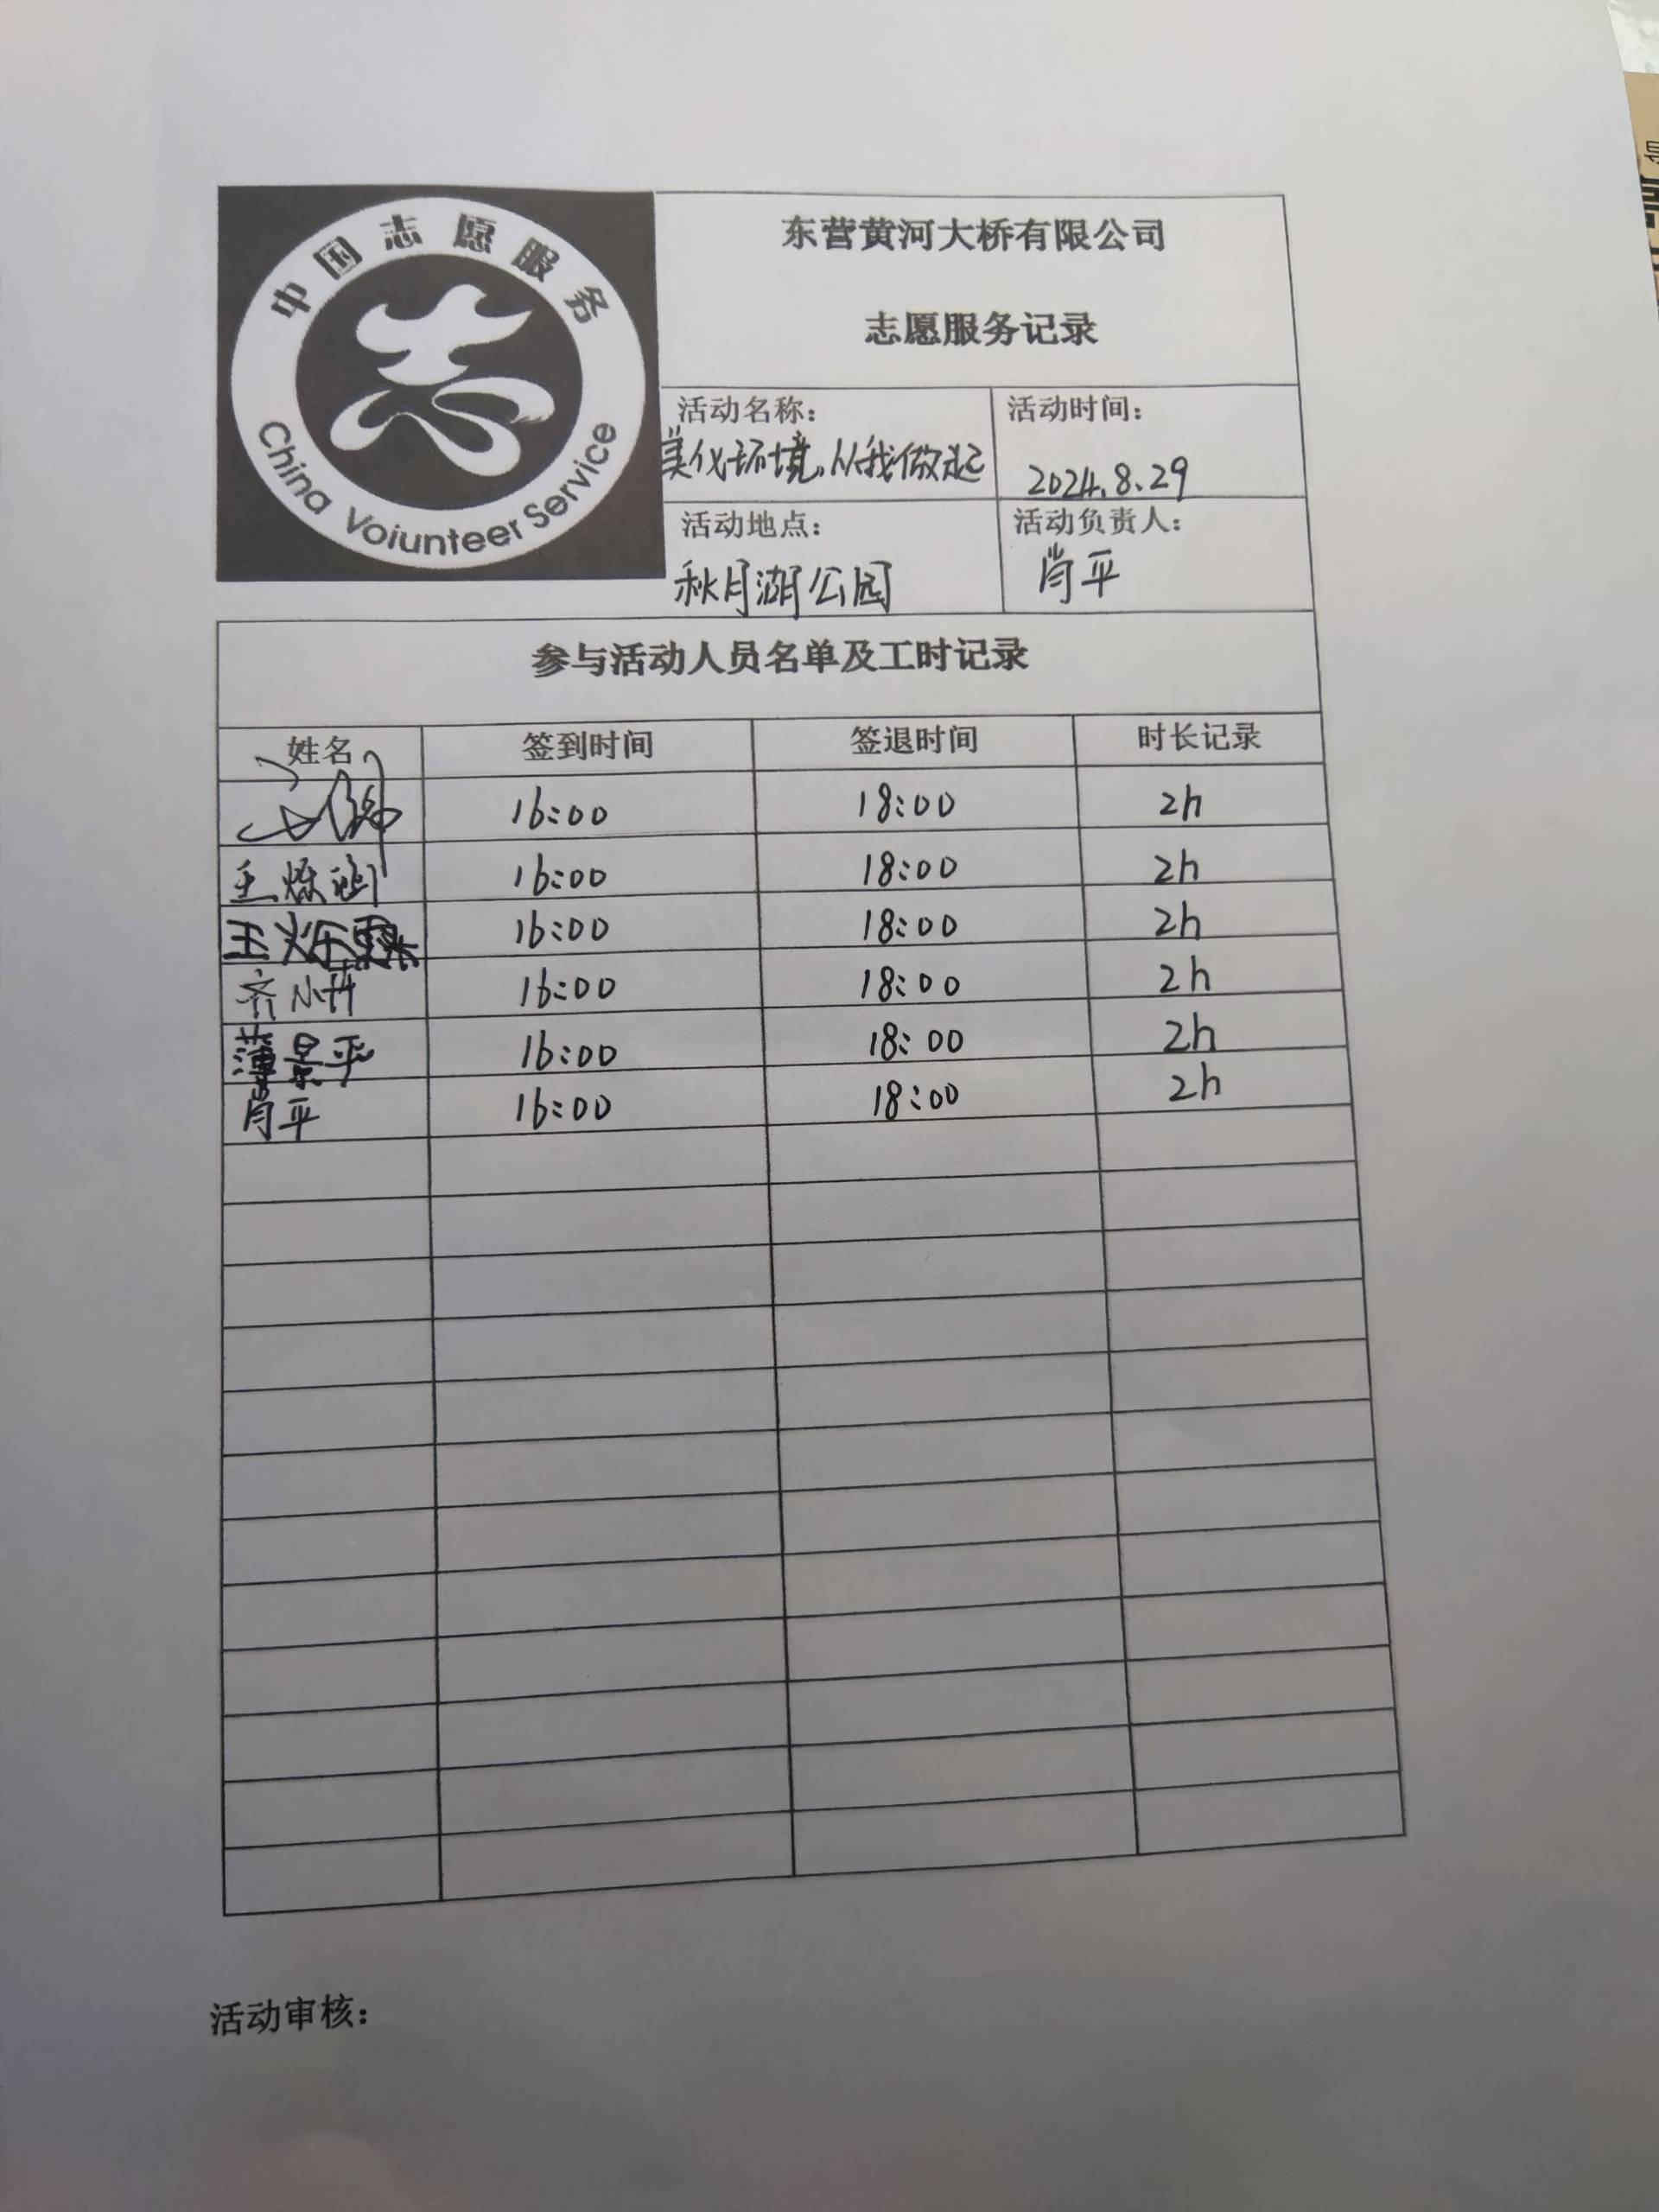 中国志愿服务
China Voiunteer Service
东营黄河大桥有限公司
志愿服务记录
活动名称：
美化环境,从我做起
活动时间：
2024.8.29
活动地点：
秋月湖公园
活动负责人：
肖平
参与活动人员名单及工时记录
姓名 签到时间 签退时间 时长记录
16:00 18:00 2h
王 16:00 18:00 2h
王 16:00 18:00 2h
齐小卉 16:00 18:00 2h
薄景平 16:00 18:00 2h
肖平 16:00 18:00 2h
活动审核：